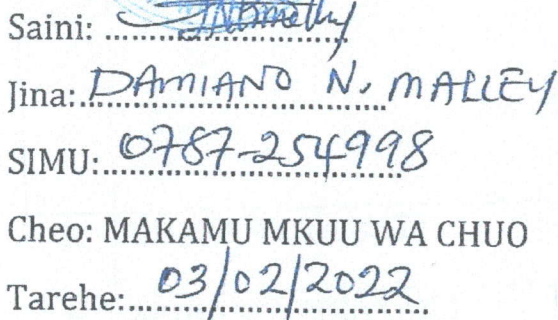 Saini: ..............................
Jina: DAMIANO N. MALLEY
SIMU: 0787-254998
Cheo: MAKAMU MKUU WA CHUO
Tarehe: 03/02/2022